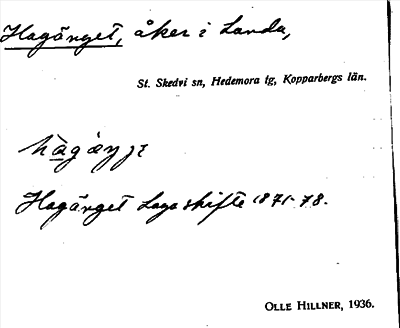 Hagänget, åker i Landa,
St. Skedvi sn, Hedemora tg, Kopparbergs län.
Hagänget Laga skifte 1871-78.
OLLE HILLNER, 1936.